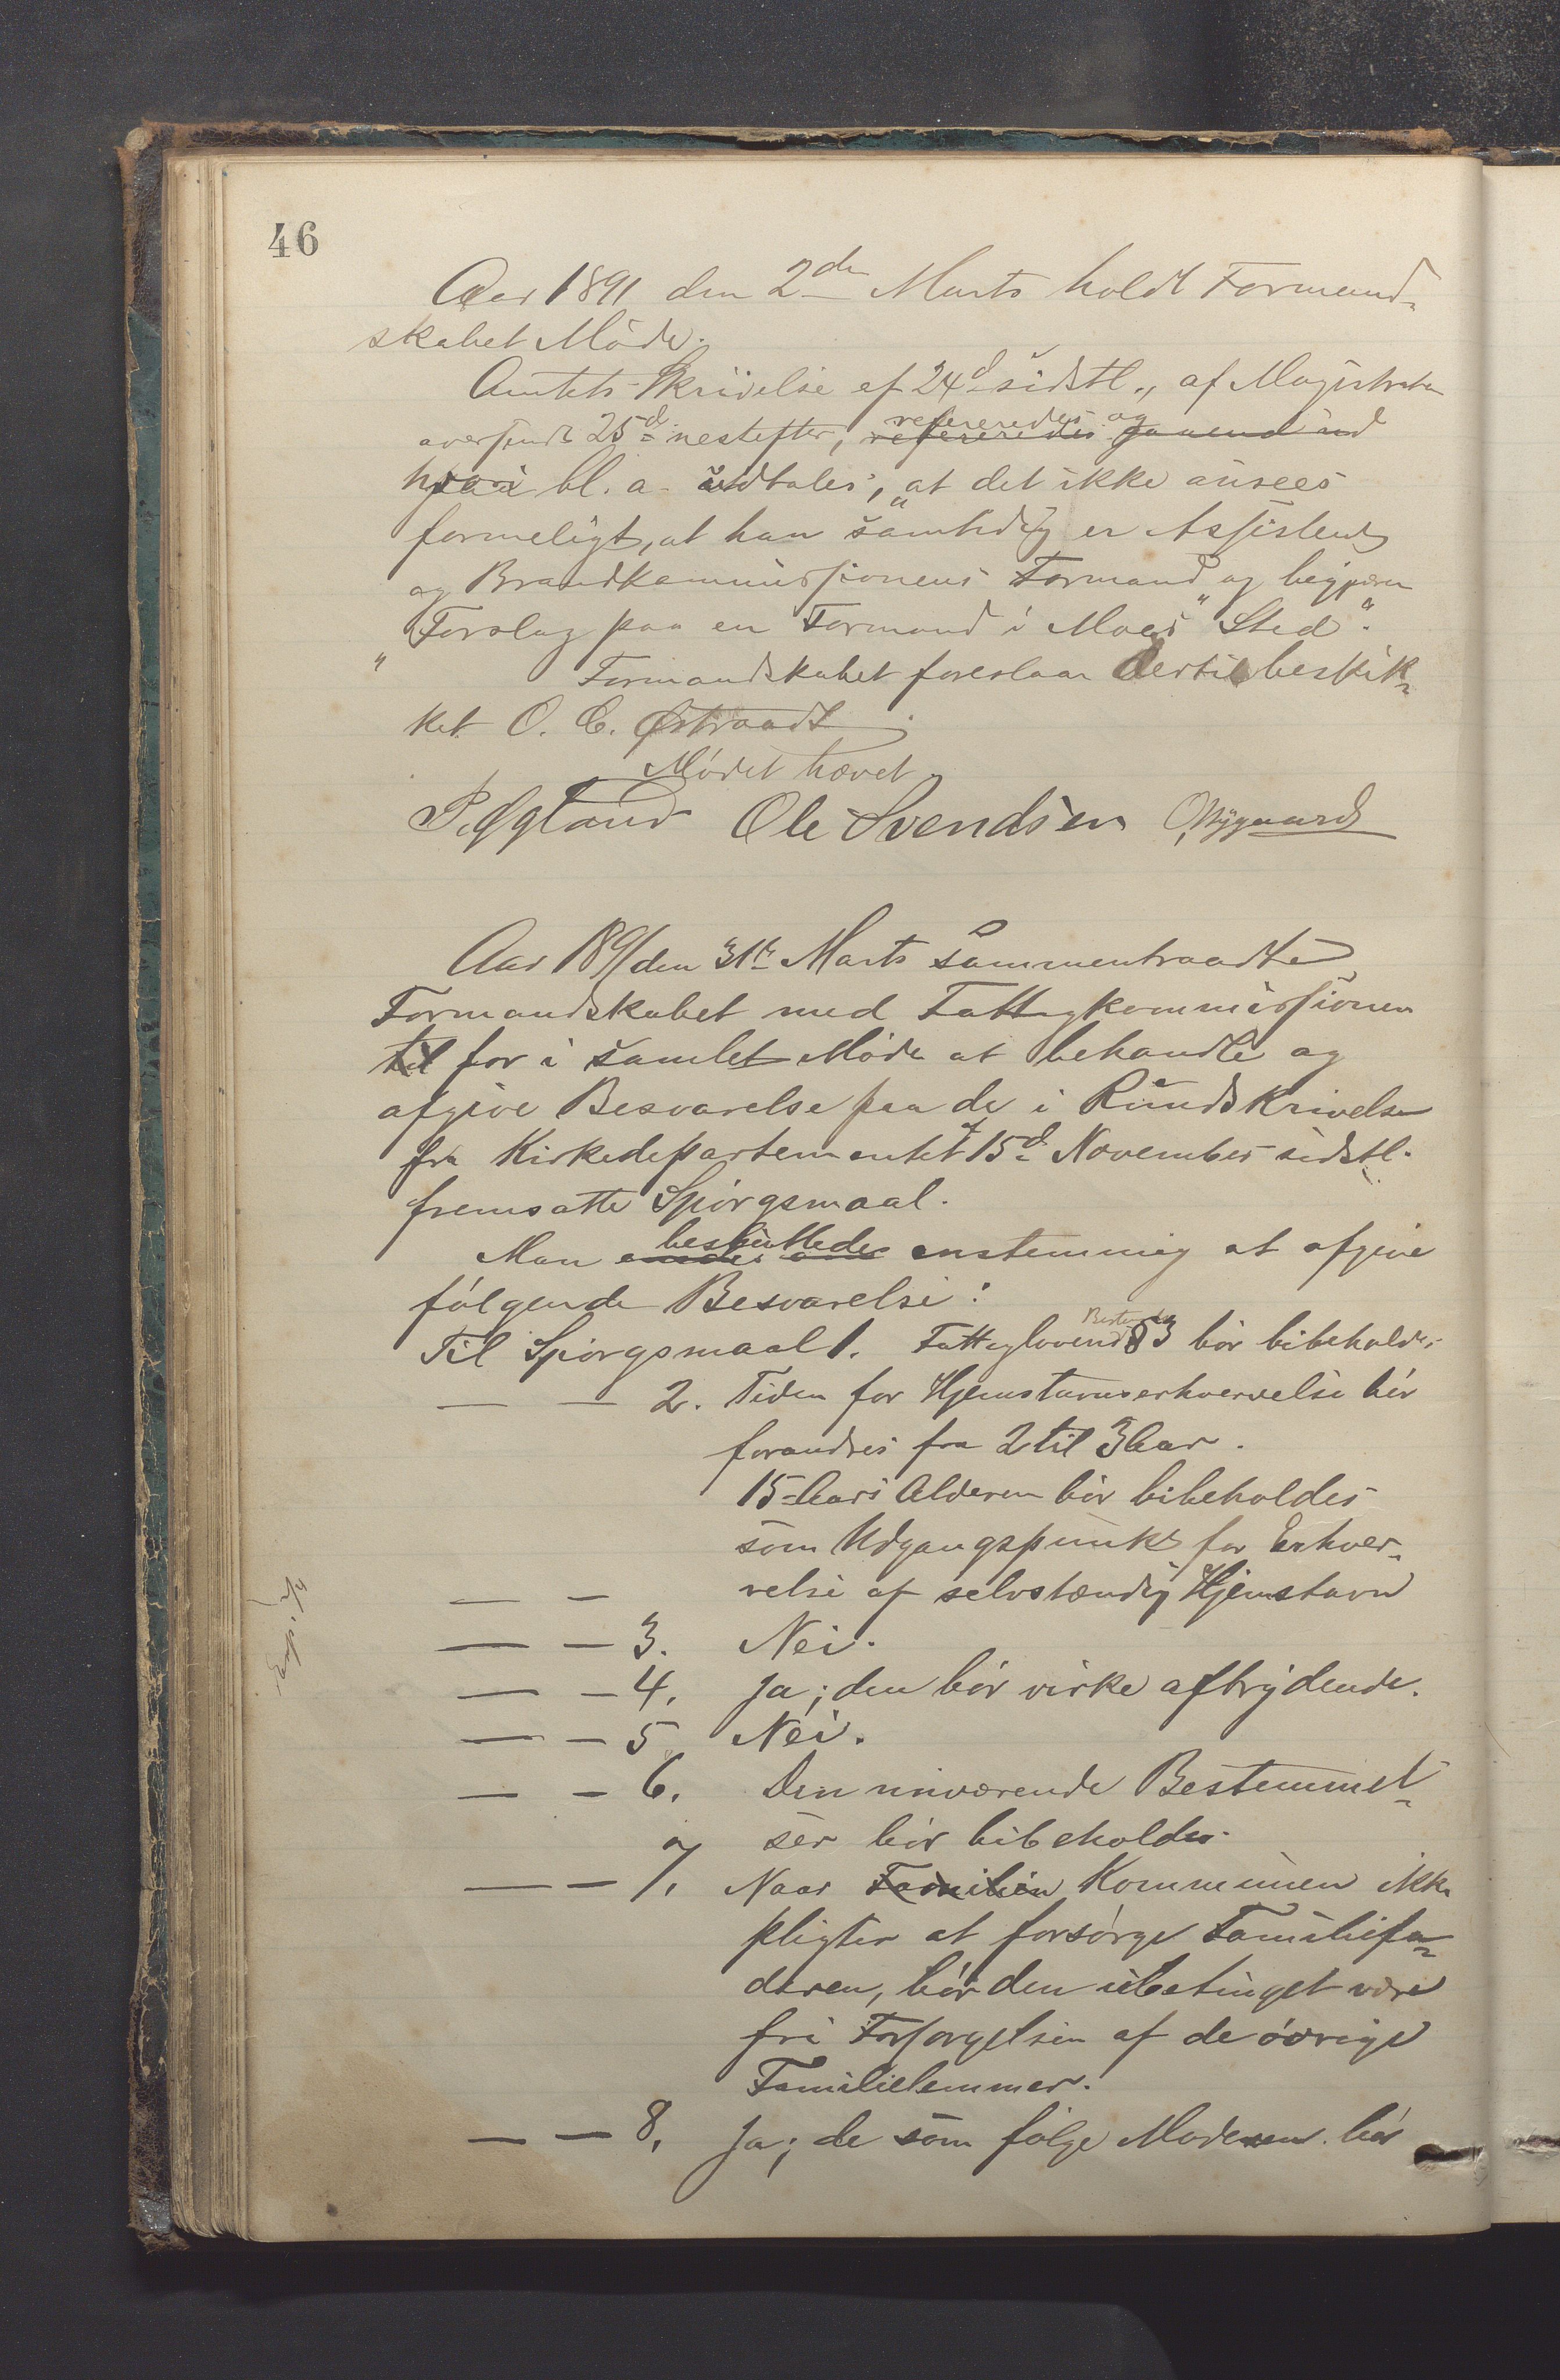 46
Aar 1891 den 2den Marts holdt Formand-
skabet Møde.
Amtets Skrivelse af 24d sidstl., af Magistraten
refereredes og
oversendt 25d nestefter, refereredes
hvori bl. a. udtales, "at det ikke ansees
formeligt, at han samtidig er Assistent
og Brandkommissionens Formand" og begjærer
"Forslag paa en Formand i Moes Sted".
" Formandskabet foreslaar dertil beskik-
ket O. C. Østraadt.
Mødet hævet.
P. Øgland Ole Svendsen O. Nygaard
Aar 1891 den 31te Marts sammentraadte
Formandskabet med Fattigkommissionen
til for i samlet Møde at behandle og
afgive Besvarelse paa de i Rundskrivelse
fra Kirkedepartementet af 15d November sidstl.
fremsatte Spørgsmaal.
besluttede
Man enstemmig at afgive
følgende Besvarelse:
Til Spørgsmaal 1. Fattiglovens § 3 bør bibeholdes
— — 2. Tiden for Hjemstavnserhvervelse bør
forandres fra 2 til 3 Aar.
15-Aars Alderen bør bibeholdes
som Udgangspunkt for Erhver-
— — velse af selvstændig Hjemstavn
— — 3. Nei.
— — 4. Ja; den bør virke afbrydende.
— — 5 Nei.
— — 6. Den nuværende Bestemmel-
ser bør bibeholdes.
— — 7. Naar Familien Kommunen ikke
pligter at forsørge Familiefa-
deren, bør den ubetinget være
fri Forsørgelsen af de øvrige
Familielemmer.
— — 8. Ja; de som følge Moderen bør
Exp. 1/4